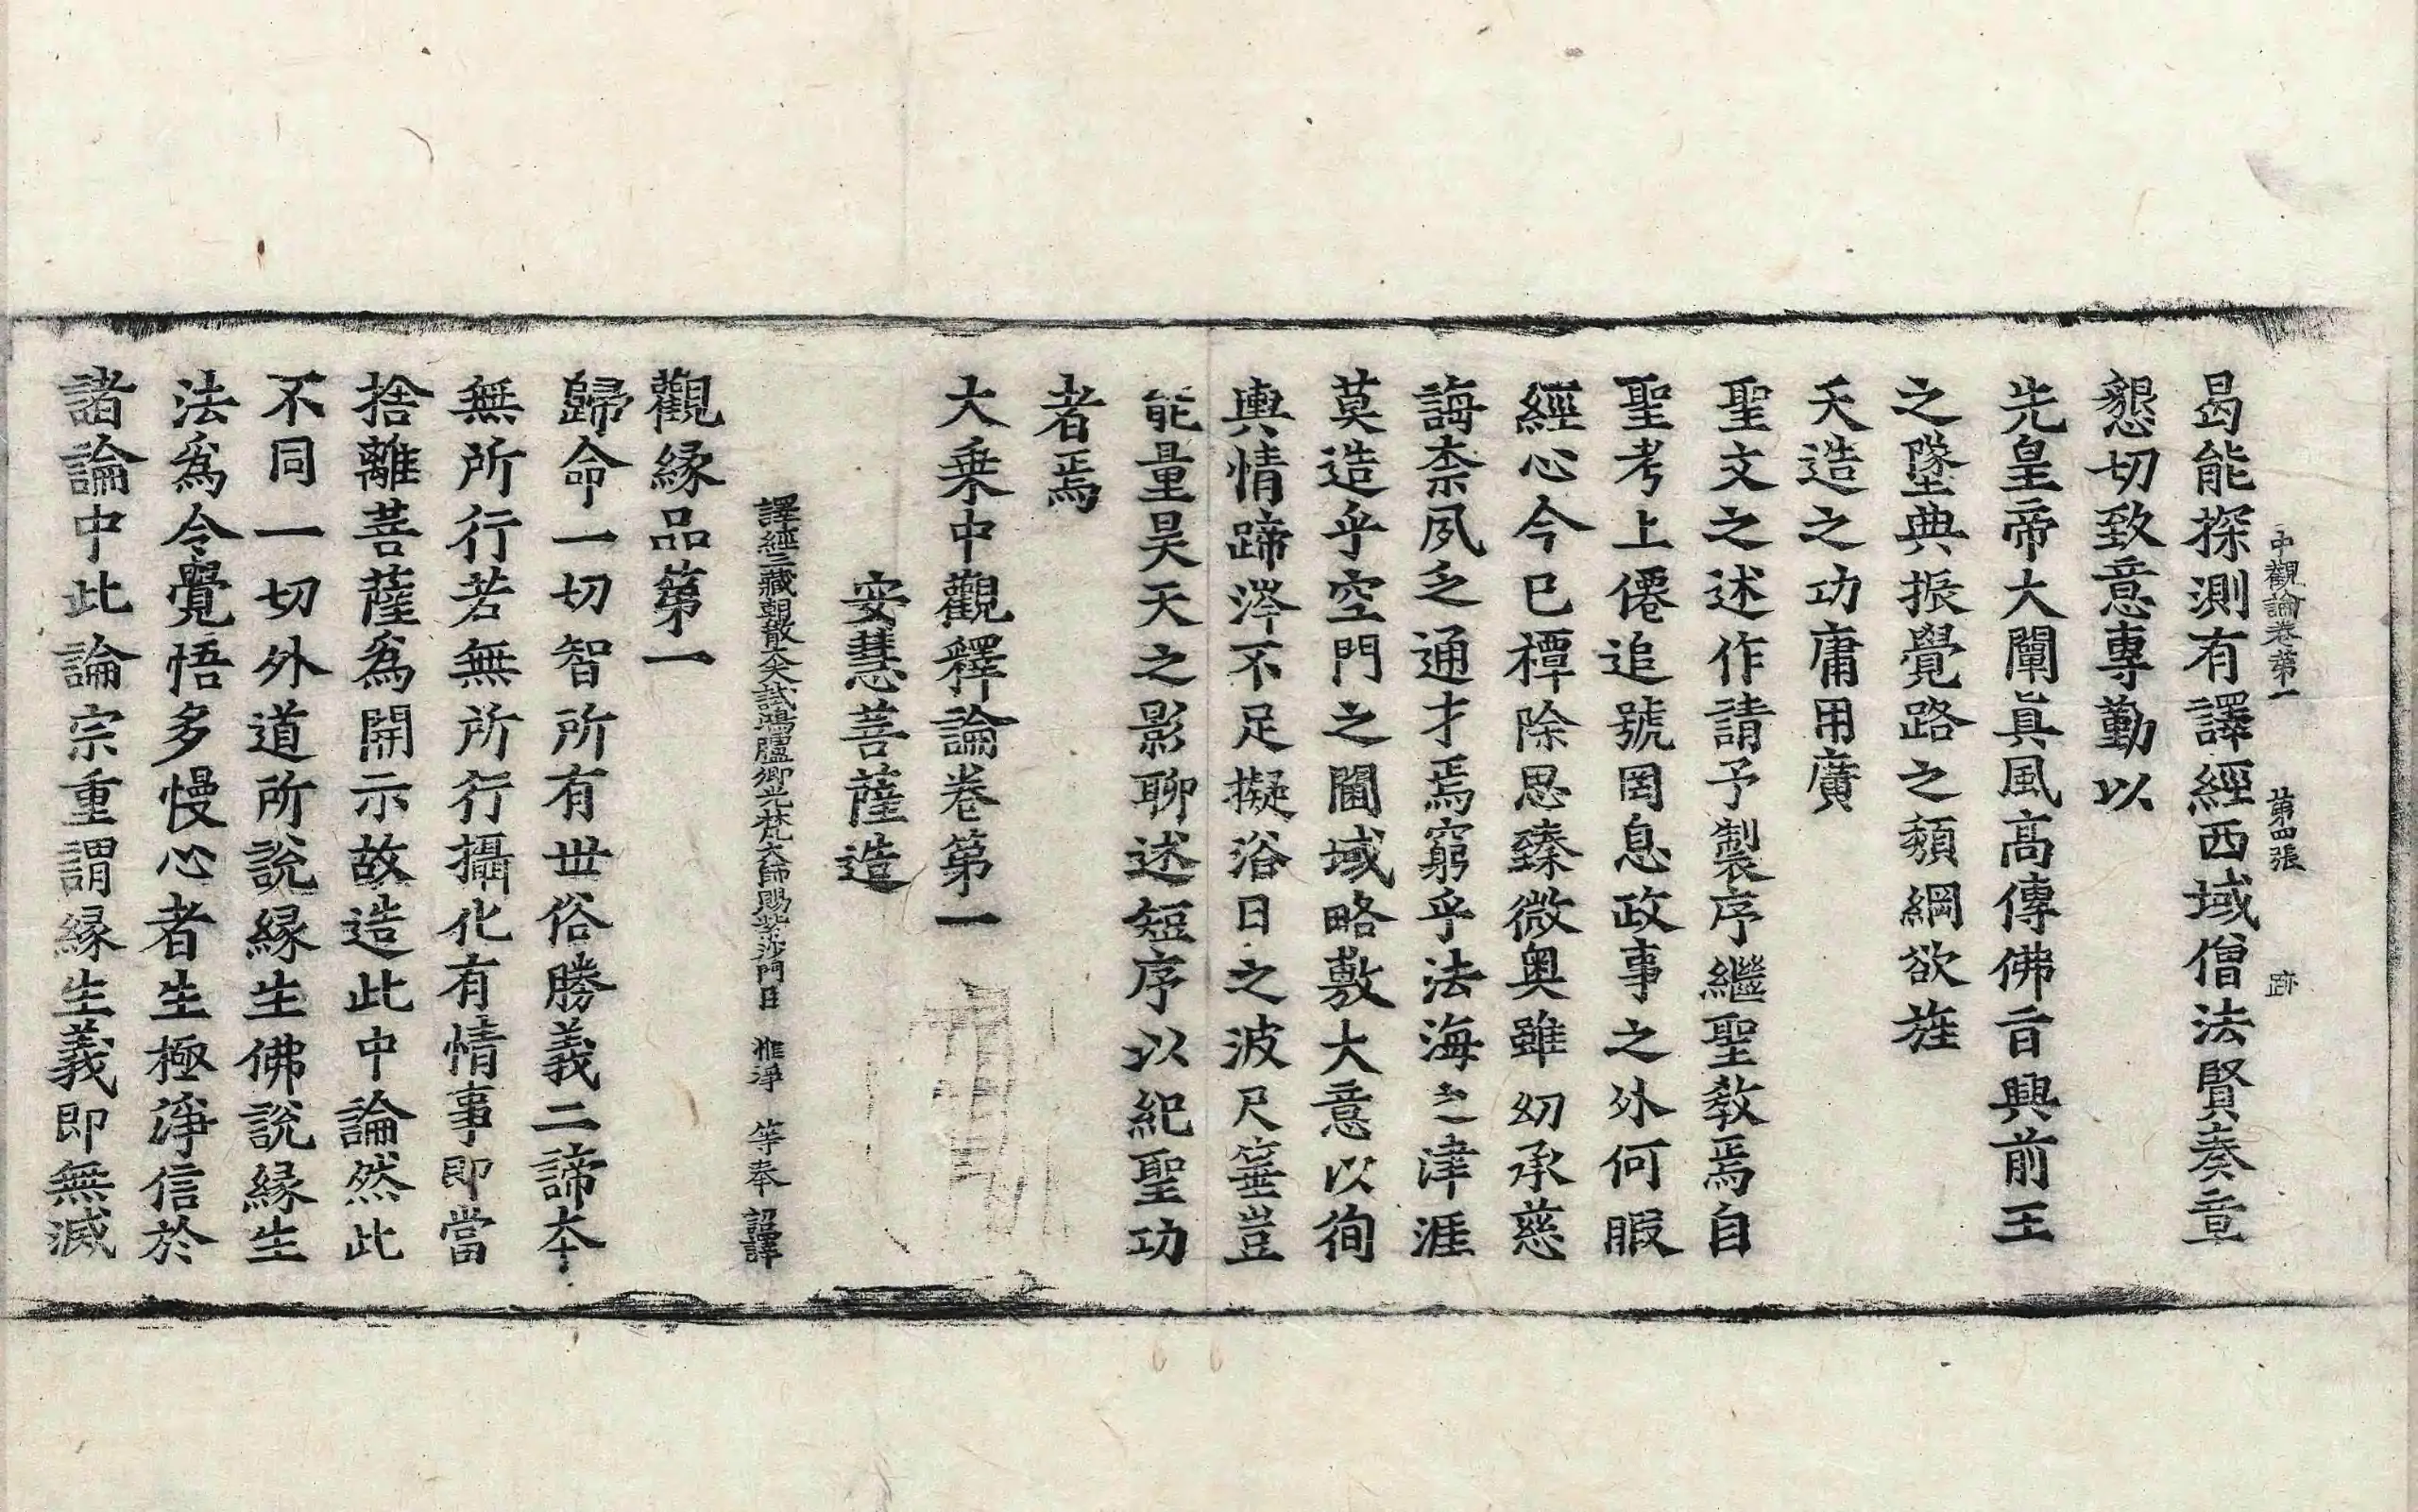 中觀論卷第一 第四張 跡
曷能探測有譯經西域僧法賢奏章
懇切致意專勤以
先皇帝大闡眞風高傳佛旨興前王
之墜典振覺路之頹綱欲旌
天造之功庸用廣
聖文之述作請予製序繼聖教焉自
聖考上僊追號罔息政事之外何暇
經心今已禫除思臻微奧雖幼承慈
誨柰夙乏通才焉窮乎法海之津涯
莫造乎空門之閫域略敷大意以徇
輿情蹄涔不足擬浴日之波尺箠豈
能量昊天之影聊述短序以紀聖功
者焉
大乗中觀釋論卷第一
安慧菩薩造
譯經三藏朝散大夫試鴻臚卿光梵大師賜紫沙門臣 惟淨 等奉 詔譯
觀緣品第一
歸命一切智所有世俗勝義二諦本
無所行行若無所行攝化有情事即當
捨離菩薩爲開示故造此中論然此
不同一切外道所說緣生佛說緣生
法爲令覺悟多慢心者生極淨信於
諸論中此論宗重謂緣生義即無滅